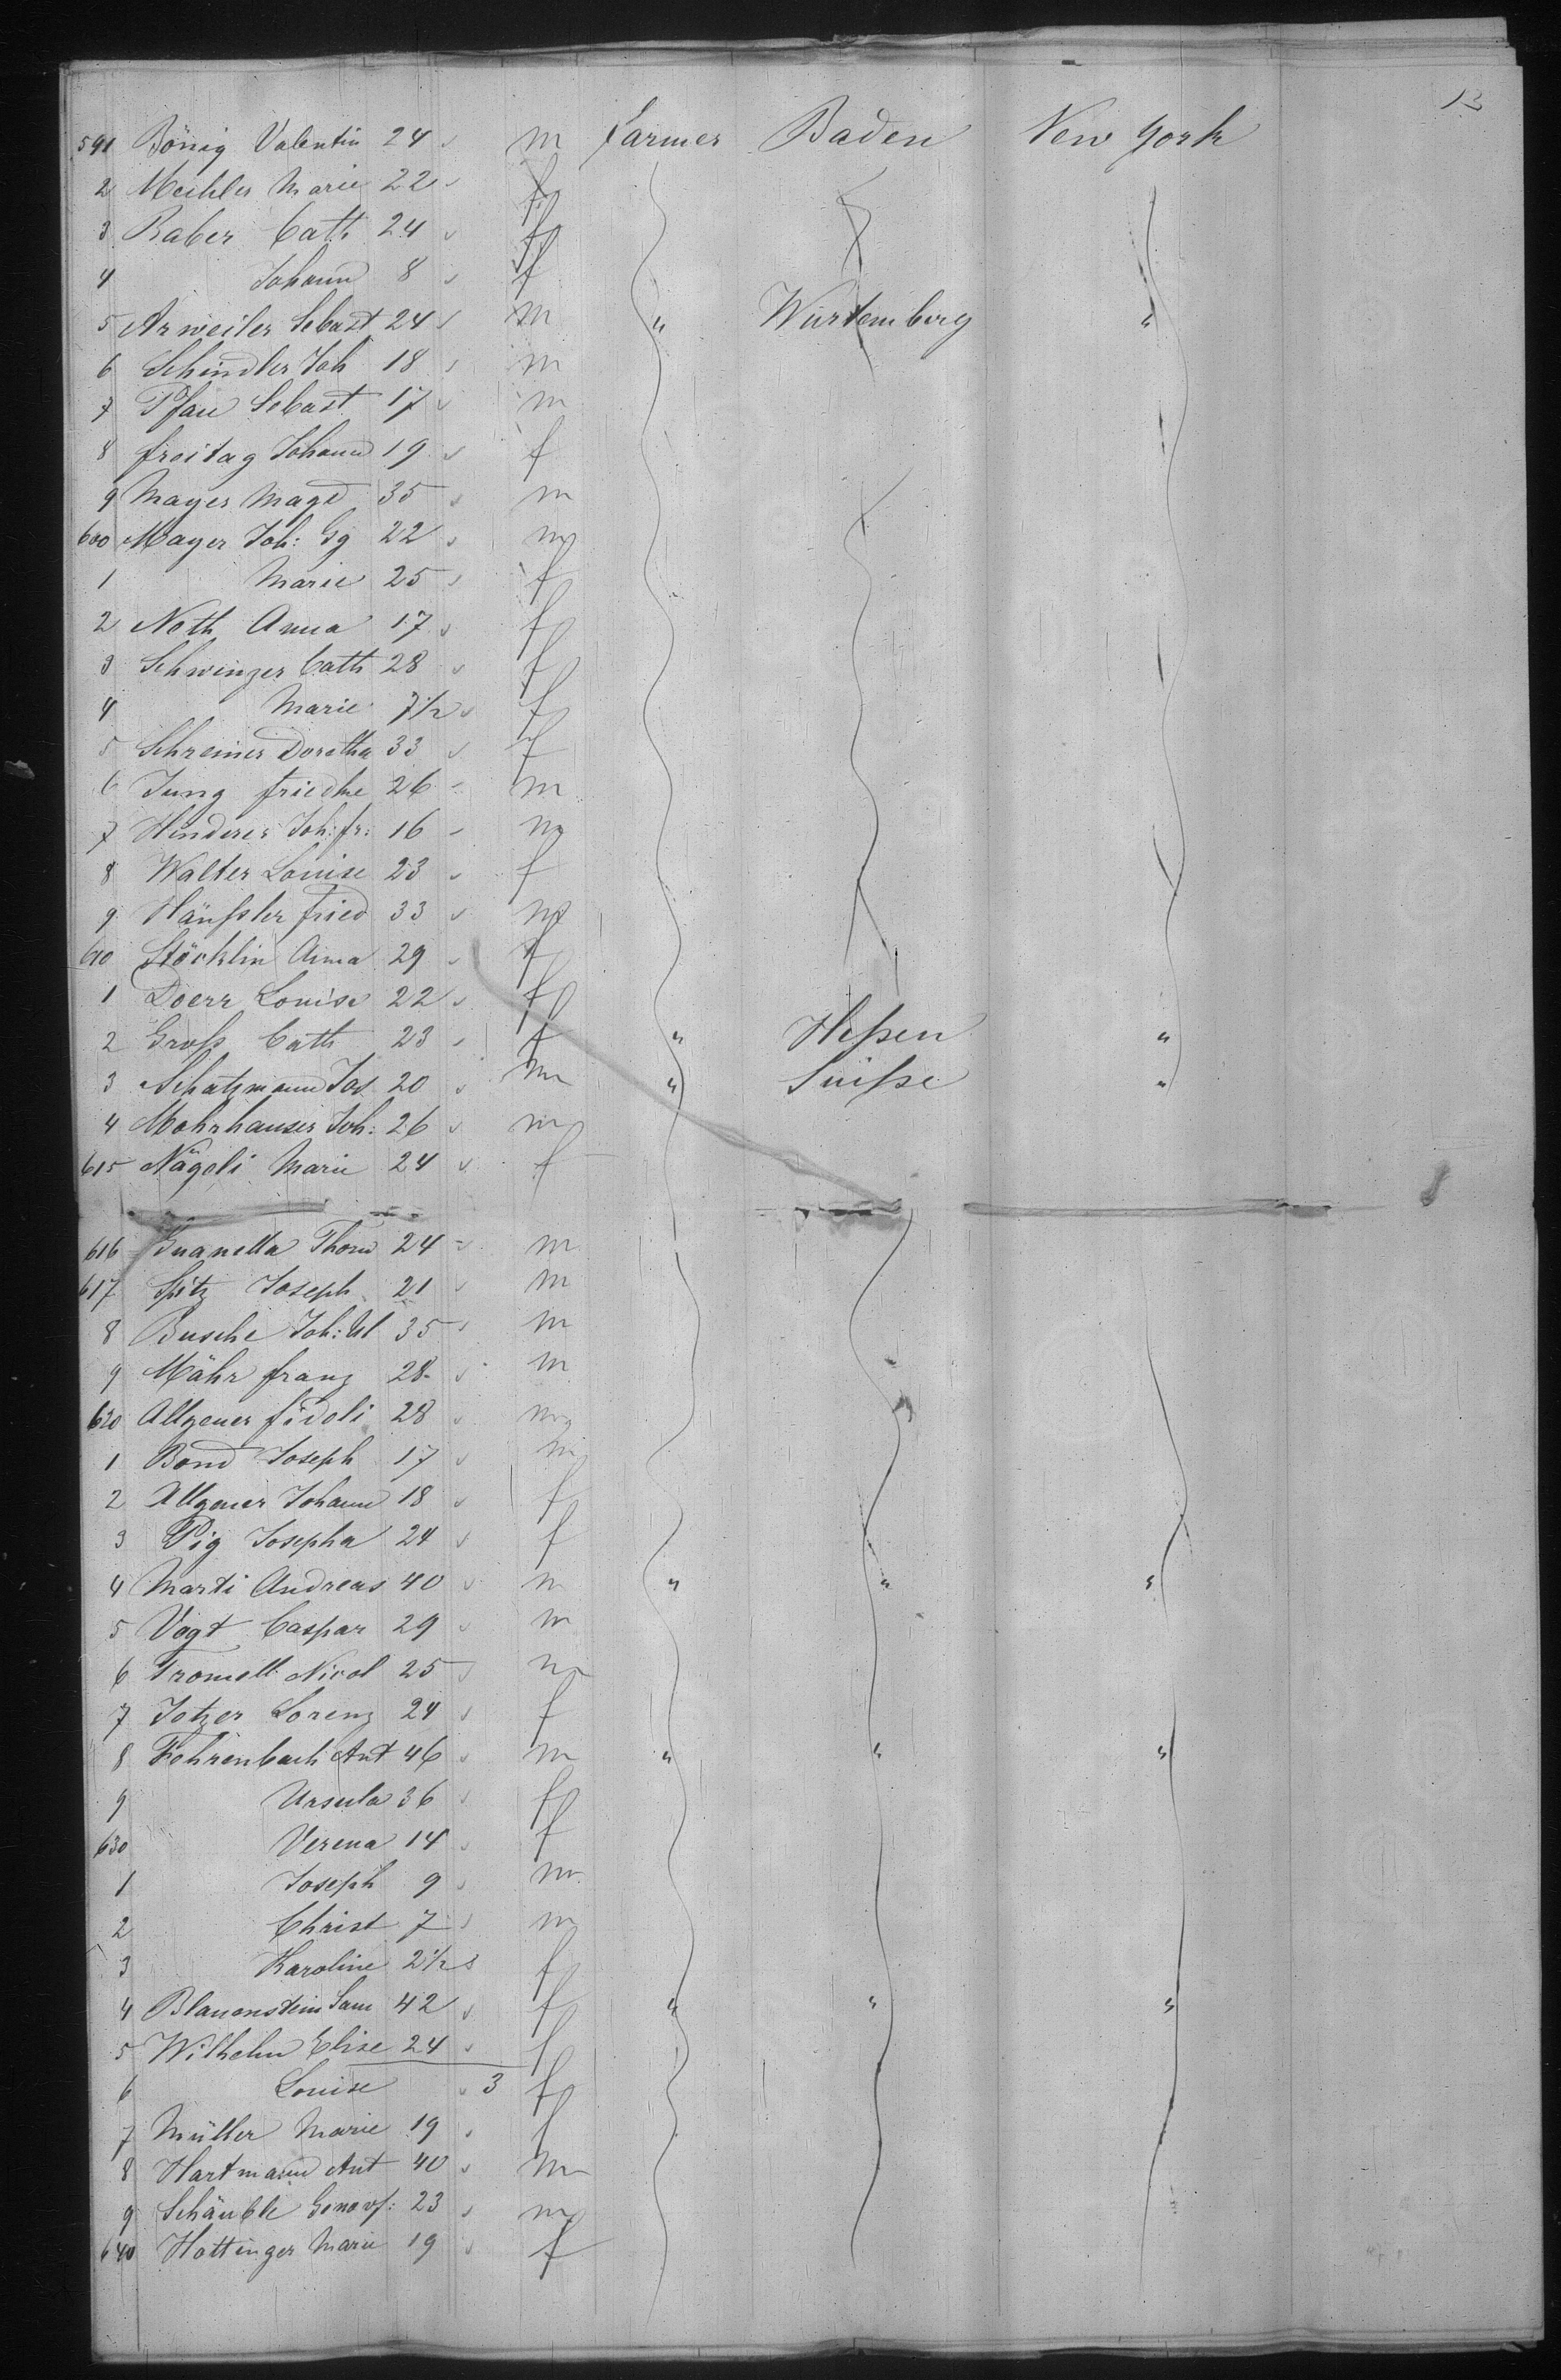 13
591 Bönig Valentin 24 m farmer Baden New York
2 Meihler Marie 22 f
3 Raber Cath 24 f
4 Johann 8 f
5 Arweiler Sebast 24 m " Wurtemberg "
6 Schindler Joh 18 m
7 Pfau Sebast 17 m
8 freitag Johann 19 f
9 Mayer Magd 35 m
600 Mayer Joh: Gg 22 m
1 Marie 25 f
2 Noth Anna 17 f
3 Schwinzer Cath 28 f
4 Marie 7½ f
5 Schreiner Doretha 33 f
6 Jung friedke 26 m
7 Hinderer Joh: fr: 16 m
8 Walter Louise 23 f
9 Häußler fried 33 m
610 Stöcklin Anna 29 f
1 Doerr Louise 22 f
2 Groß Cath 23 f " Heßen "
3 Schatzmann Jos 20 m " Suiße "
4 Mohrhauser Joh: 26 m
615 Nägeli Marie 24 f
616 Thom 24 m
617 Spitz Joseph 21 m
8 Busche Joh: Ul 35 m
9 Mähr franz 28 m
620 Allgeuer fideli 28 m
1 Bond Joseph 17 m
2 Allgeuer Johann 18 f
3 Pig Josepha 24 f
4 Marti Andreas 40 m " " "
5 Vogt Caspar 29 m
6 Tromell Nicol 25 m
7 Jotzer Lorenz 24 f
8 Fehrenbach Ant 46 m " " "
9 Ursula 36 f
630 Verena 14 f
1 Joseph 9 m
2 Christ 7 m
3 Karoline 2½ f
4 Blauenstein Sam 42 f " " "
5 Wilhelm Elise 24 f
6 Louise 3 f
7 Müller Marie 19 f
8 Hartmann Ant 40 m
9 Schäuble Genovf: 23 m
640 Hottinger Marie 19 f